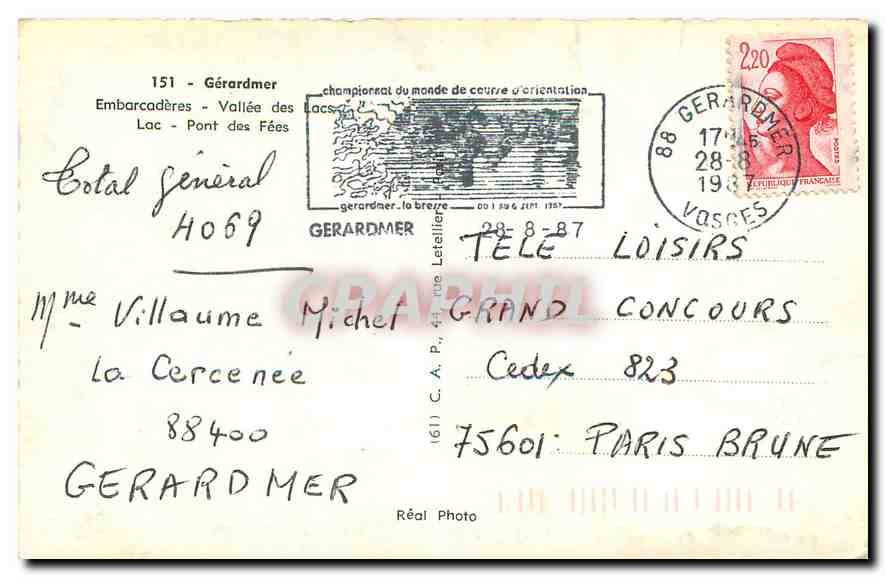 151 - Gérardmer
Embarcadères - Vallée des Lacs
Lac - Pont des Fées
championnat du monde de course d'orientation
gerardmer - la bresse DU 1 AU 6 SEPT. 1987
GERARDMER 28-8-87
88 GERARDMER
17H45
28-8
1987
VOSGES
2,20
POSTES
REPUBLIQUE FRANÇAISE
Total général
4069
Mme Villaume Michel
La Cercenée
88400
GERARDMER
(61) C. A. P., 44, rue Letellier - Paris
TELE LOISIRS
GRAND CONCOURS
Cedex 823
75601 PARIS BRUNE
Réal Photo
CPAPHIL